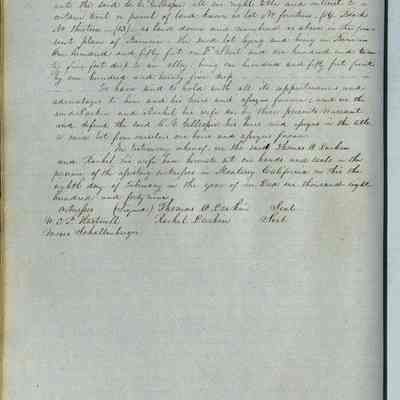 unto the said C. E. Gillespie all our right, title and interest to a
certain lot or parcel of land known as lot No. fourteen (14) Block
No. thirteen (13) as laid down and numbered as above in the
plan of the said lot lying and being in
One hundred and fifty feet on F Street and one hundred and twen
ty five feet deep to an alley, being one hundred and fifty feet front
by one hundred and twenty five deep
To have and to hold with all its appurtenances and
advantages to him and his heirs and assigns forever, and we the
said Larkin and Rachel his wife do by these presents warrant
and defend the said C. E. Gillespie his heirs and assigns in the title
to said lot from ourselves our heirs and assigns forever
In testimony whereof we the said Thomas O. Larkin
and Rachel his wife have hereunto set our hands and seals in the
presence of the witnesses in Monterey California on this the
eighth day of February in the year of our Lord one thousand eight
hundred and forty nine
Witnesses (Signed) Thomas O. Larkin Seal
W. E. P. Hartnell Rachel Larkin Seal
Moses Schallenberger